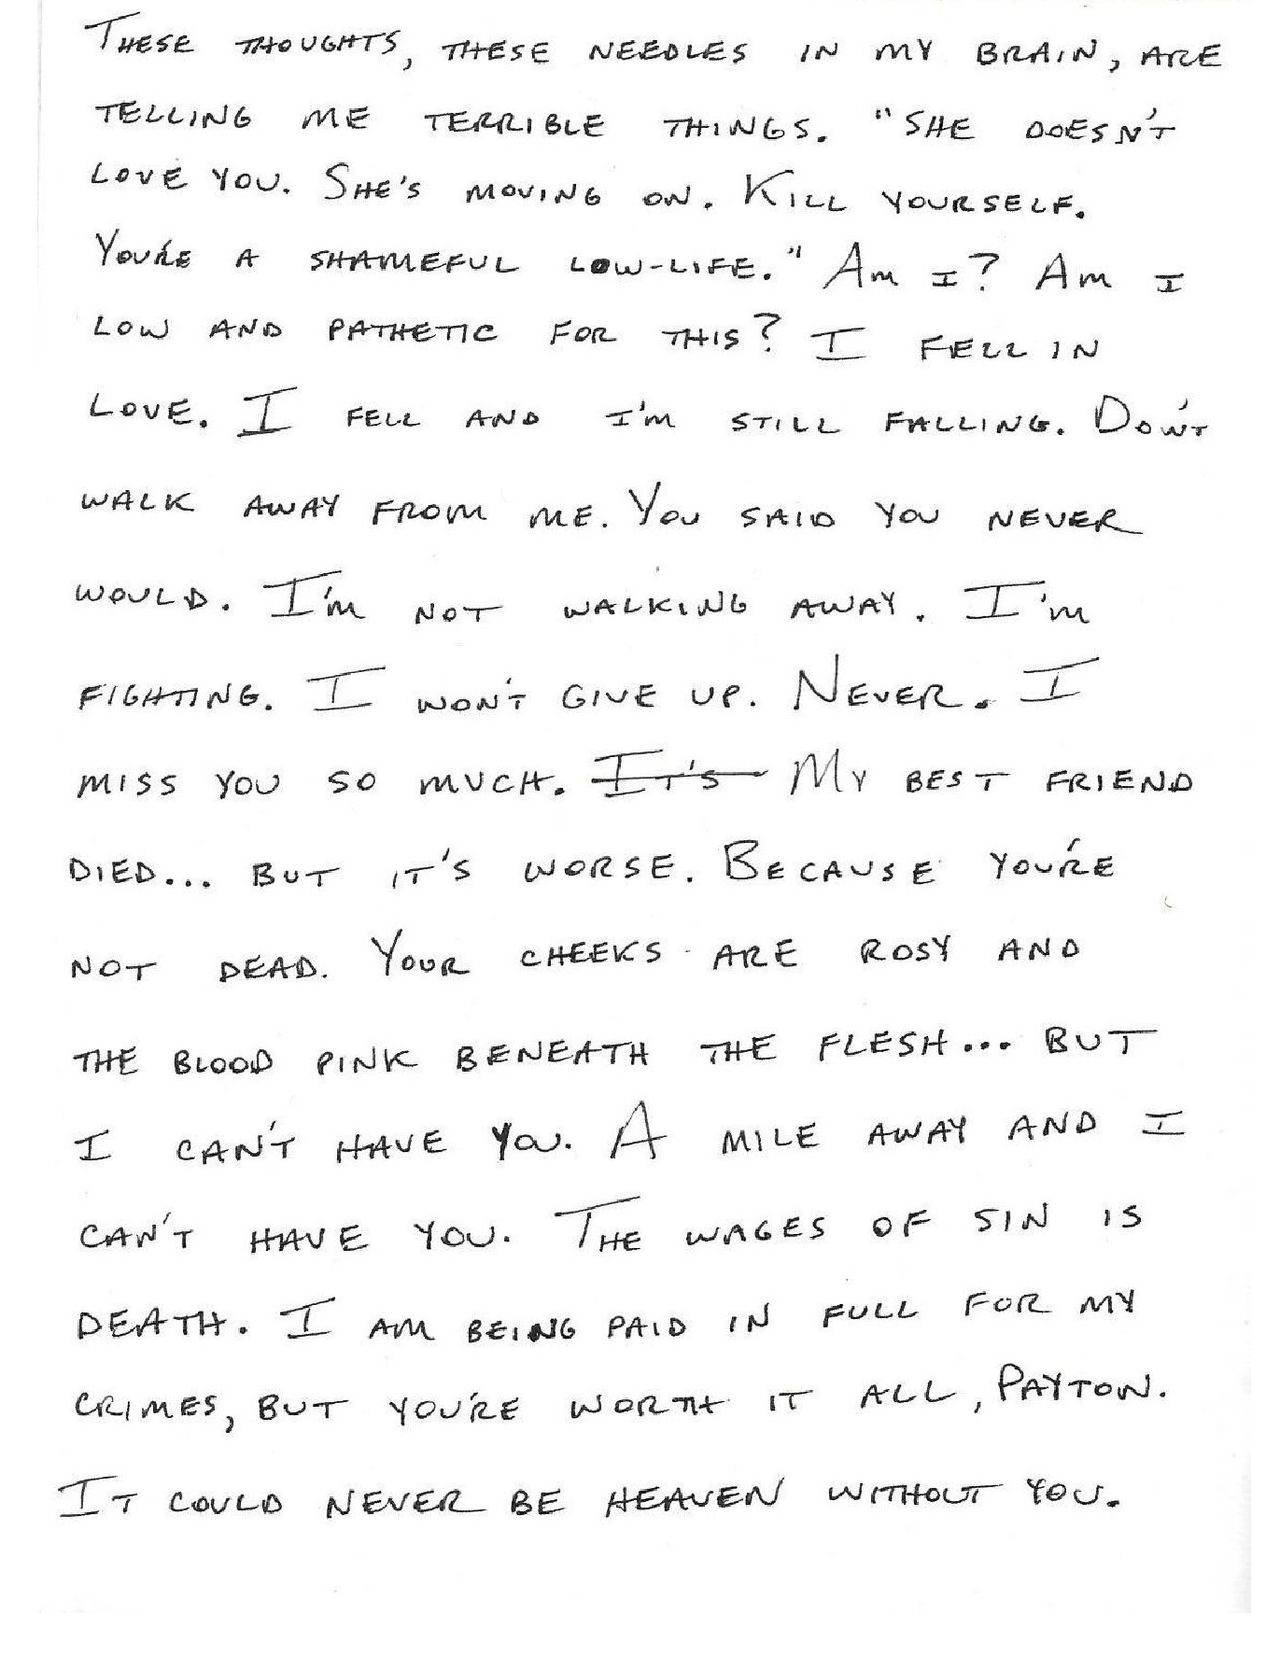 THESE THOUGHTS, THESE NEEDLES IN MY BRAIN, ARE
TELLING ME TERRIBLE THINGS. "SHE DOESN'T
LOVE YOU. SHE'S MOVING ON. KILL YOURSELF.
YOU'RE A SHAMEFUL LOW-LIFE." AM I? AM I
LOW AND PATHETIC FOR THIS? I FELL IN
LOVE. I FELL AND I'M STILL FALLING. DON'T
WALK AWAY FROM ME. YOU SAID YOU NEVER
WOULD. I'M NOT WALKING AWAY. I'M
FIGHTING. I WON'T GIVE UP. NEVER. I
MISS YOU SO MUCH. IT'S MY BEST FRIEND
DIED... BUT IT'S WORSE. BECAUSE YOU'RE
NOT DEAD. YOUR CHEEKS ARE ROSY AND
THE BLOOD PINK BENEATH THE FLESH... BUT
I CAN'T HAVE YOU. A MILE AWAY AND I
CAN'T HAVE YOU. THE WAGES OF SIN IS
DEATH. I AM BEING PAID IN FULL FOR MY
CRIMES, BUT YOU'RE WORTH IT ALL, PAYTON.
IT COULD NEVER BE HEAVEN WITHOUT YOU.